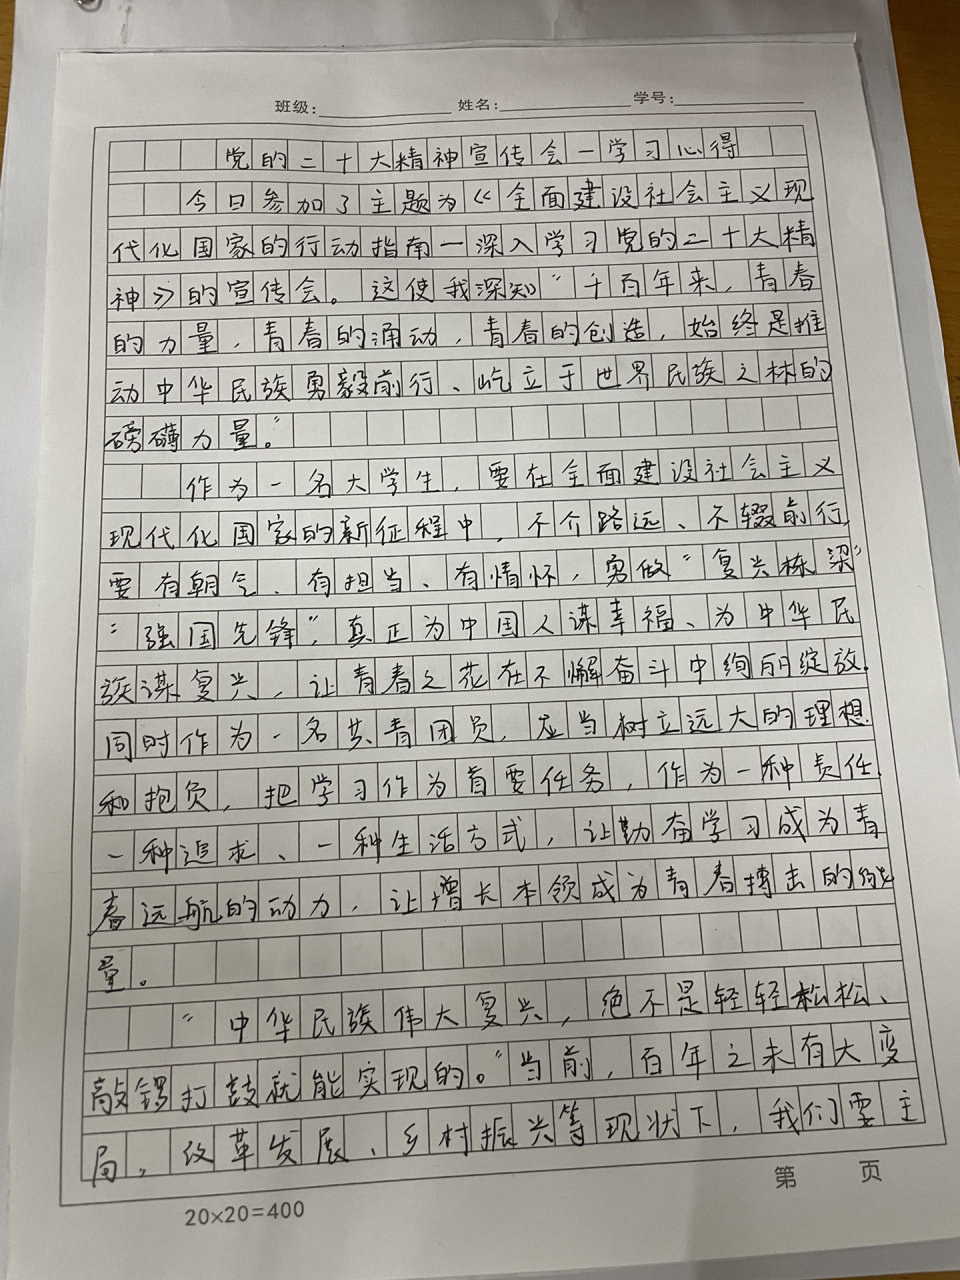 班级： 姓名： 学号：
党的二十大精神宣传会—学习心得
今日参加了主题为《全面建设社会主义现
代化国家的行动指南—深入学习党的二十大精
神》的宣传会。这使我深知“千百年来，青春
的力量，青春的涌动，青春的创造，始终是推
动中华民族勇毅前行、屹立于世界民族之林的
磅礴力量。”
作为一名大学生，要在全面建设社会主义
现代化国家的新征程中，不介路远、不辍前行，
要有朝气、有担当、有情怀，勇做“复兴栋梁”
“强国先锋”，真正为中国人谋幸福、为中华民
族谋复兴，让青春之花在不懈奋斗中绚丽绽放。
同时作为一名共青团员，应当树立远大的理想
和抱负，把学习作为首要任务，作为一种责任、
一种追求、一种生活方式，让勤奋学习成为青
春远航的动力，让增长本领成为青春搏击的能
量。
“中华民族伟大复兴，绝不是轻轻松松、
敲锣打鼓就能实现的。”当前，百年之未有大变
局，改革发展、乡村振兴等现状下，我们要主
第 页
20×20=400